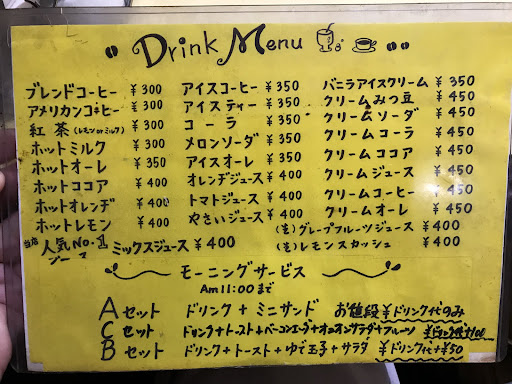 Drink Menu
ブレンドコーヒー ¥300
アメリカンコーヒー ¥300
紅茶(レモンorミルク) ¥300
ホットミルク ¥300
ホットオーレ ¥350
ホットココア ¥400
ホットオレンヂ ¥400
ホットレモン ¥400
アイスコーヒー ¥350
アイスティー ¥350
コーラ ¥350
メロンソーダ ¥350
アイスオーレ ¥350
オレンヂジュース ¥400
トマトジュース ¥400
やさいジュース ¥400
バニラアイスクリーム ¥350
クリームみつ豆 ¥450
クリームソーダ ¥450
クリームコーラ ¥450
クリームココア ¥450
クリームジュース ¥450
クリームコーヒー ¥450
クリームオーレ ¥450
(生)グレープフルーツジュース ¥400
(生)レモンスカッシュ ¥400
当店人気No.1 ミックスジュース ¥400
モーニングサービス
Am11:00まで
Aセット ドリンク+ミニサンド お値段¥ドリンク代のみ
Cセット ドリンク+トースト+ベーコンエッグ+オニオンサラダ+フルーツ ¥ドリンク代+100
Bセット ドリンク+トースト+ゆで玉子+サラダ ¥ドリンク代+¥50